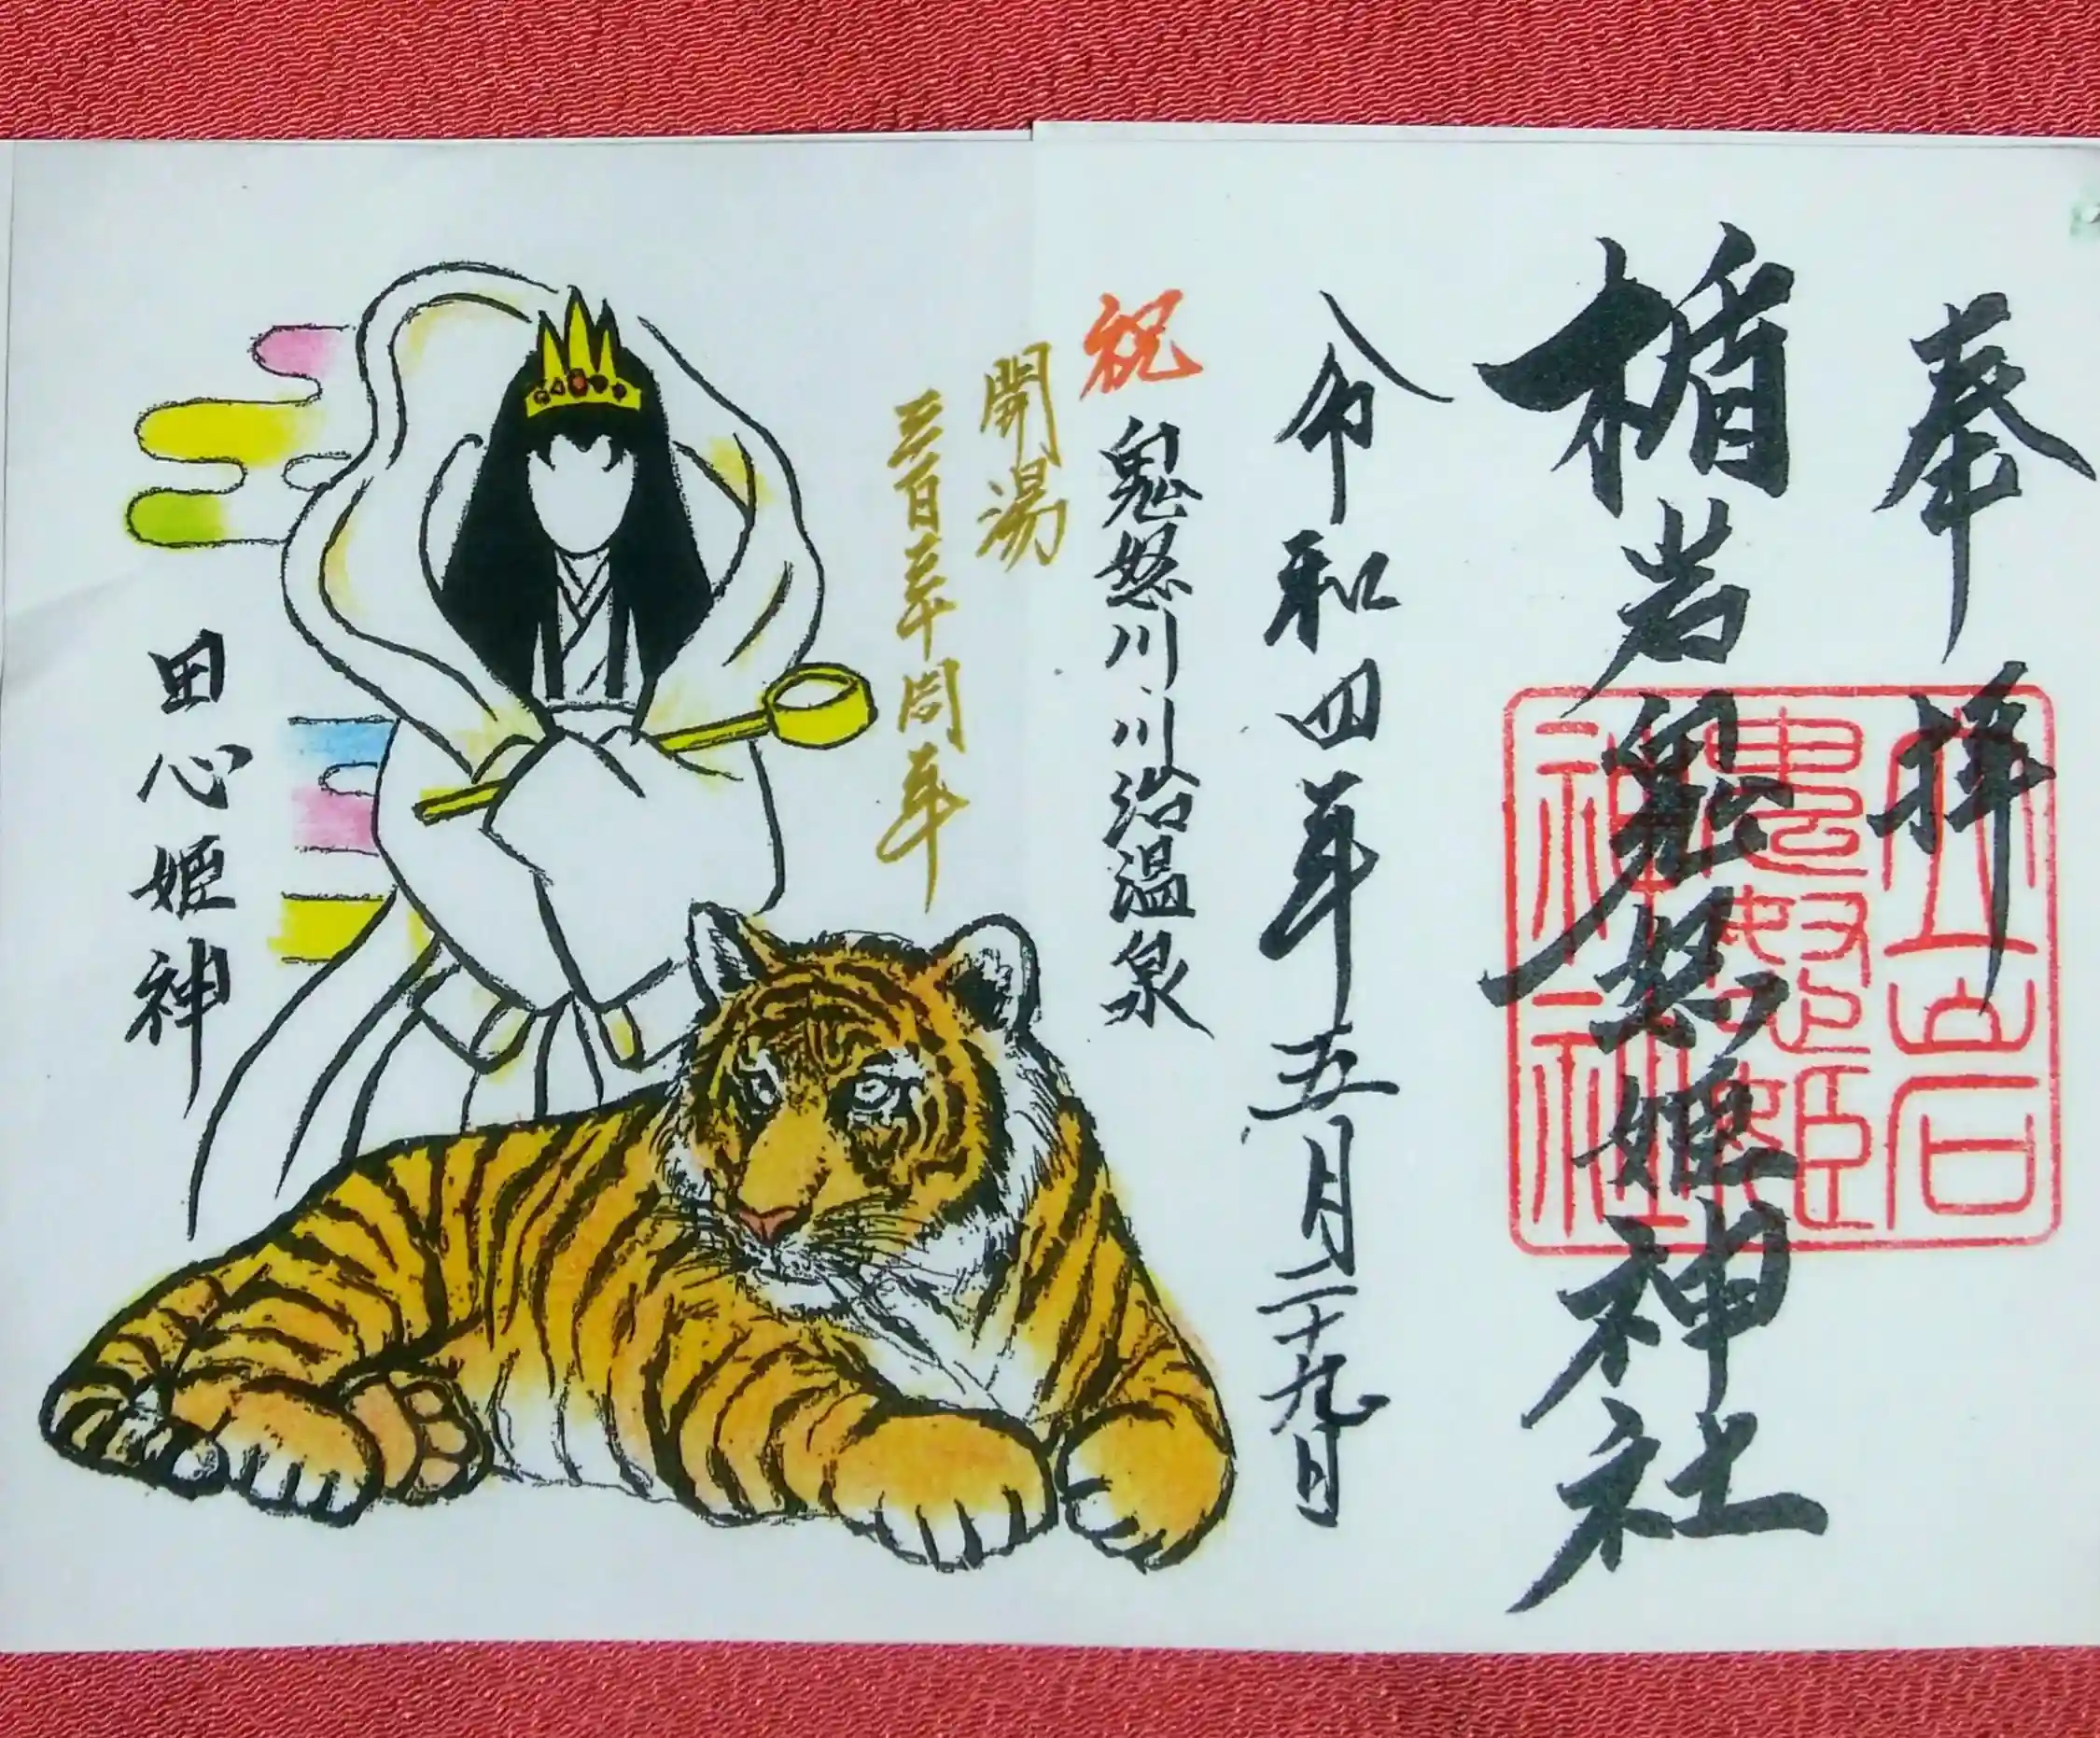 奉拝
楯岩鬼怒姫神社
立岩
鬼怒姫
神社
令和四年五月二十九日
祝 鬼怒川川治温泉
開湯
三百三十周年
田心姫神